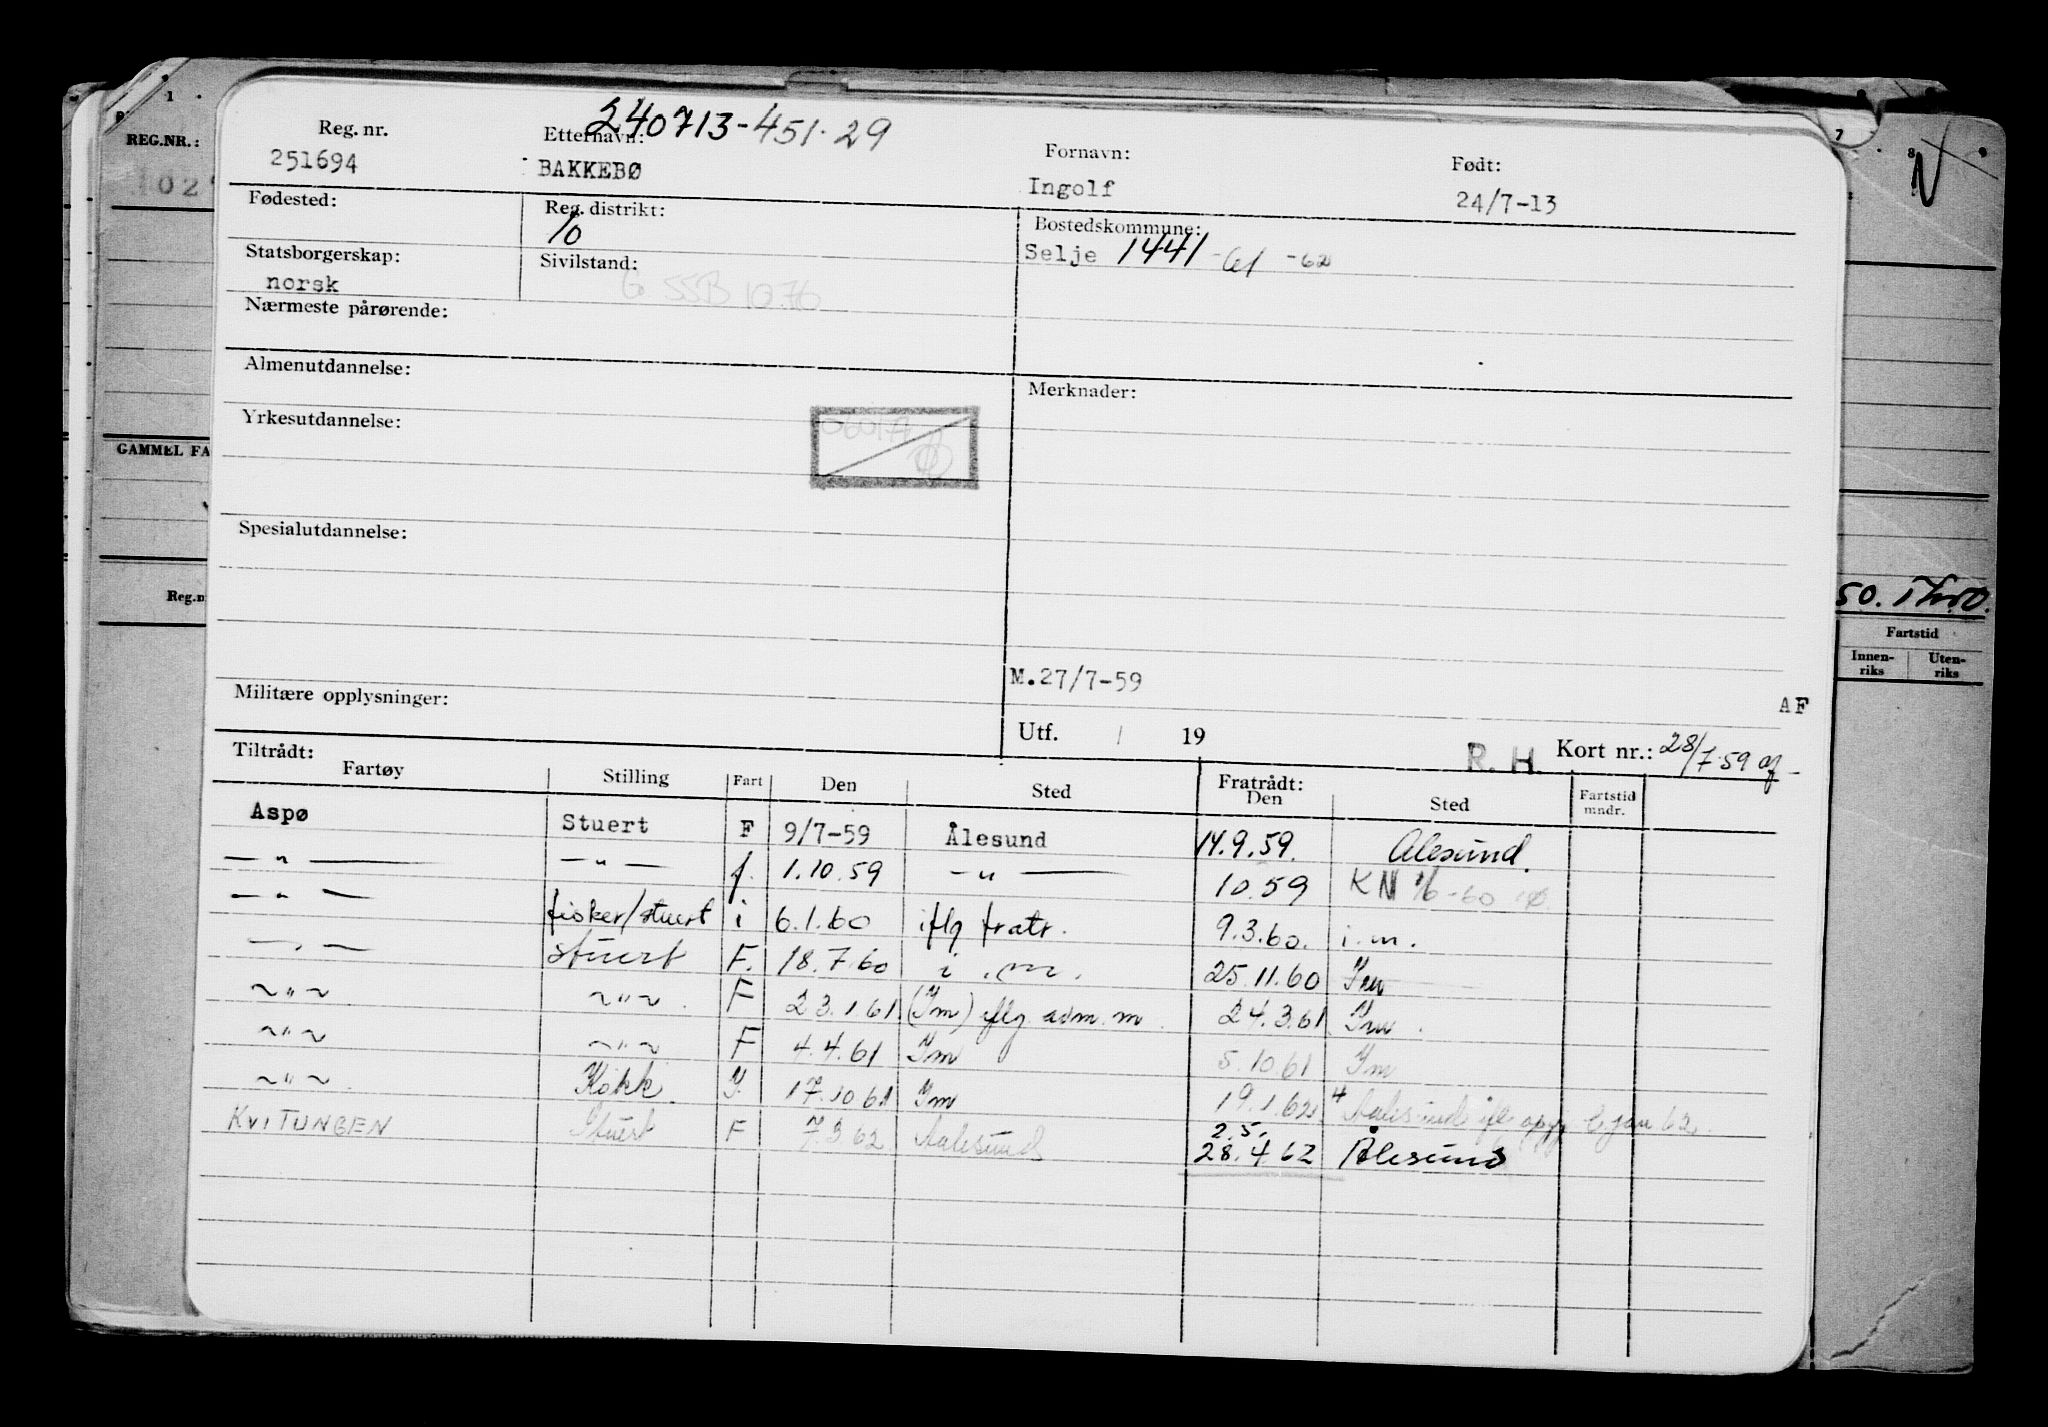 240713-451.29
Reg. nr. Etternavn: Fornavn: Født:
251694 BAKKEBØ Ingolf 24/7-13
Fødested: Reg. distrikt: Bostedskommune:
10 Selje 1441 -61 -62
Statsborgerskap: Sivilstand:
norsk
Nærmeste pårørende:
Almenutdannelse: Merknader:
Yrkesutdannelse:
Spesialutdannelse:
M.27/7-59
Militære opplysninger: AF
Utf. / 19 R. H. Kort nr.: 28/7.59 af
Tiltrådt: Fratrådt:
Fartøy Stilling Fart Den Sted Den Sted Fartstid mndr.
Aspø Stuert F 9/7-59 Ålesund 14.9.59. Alesund.
— " — — " — f. 1.10.59 — " — 10.59 KN 1/6-60
— " — fisker/stuert i 6.1.60 iflg fratr. 9.3.60. i.m.
— " — stuert F. 18.7.60 i.m. 25.11.60 Im
~ " ~ ~ " ~ F 23.1.61 (Im) iflg adm.m. 24.3.61 Im.
~ " ~ ~ " ~ F 4.4.61 Im 5.10.61 Im
~ " ~ Kokk I. 17.10.61 Im 19.1.62 Aalesund ifl oppg jan 62.
KVITUNGEN Stuert F 7.3.62 Aalesund 2.5.
28.4.62 Ålesund
REG.NR.:
GAMMEL FA
Reg.n
1
7 8 9
N
50.
Fartstid
Innen-riks Uten-riks